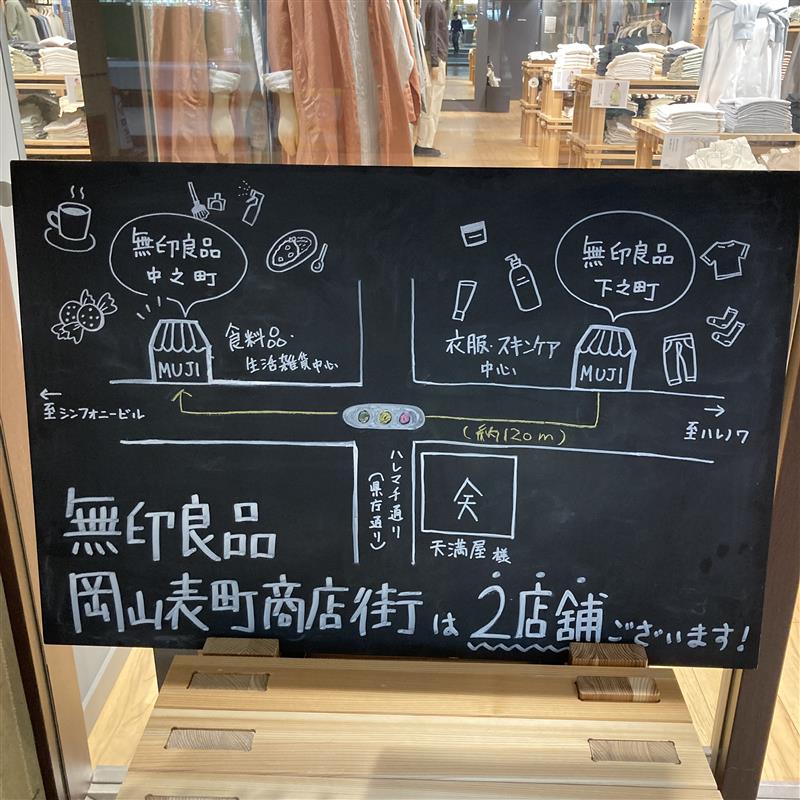 無印良品
中之町
食料品・
生活雑貨中心
MUJI
無印良品
下之町
衣服・スキンケア
中心
MUJI
←
至シンフォニービル
(約120m)
→
至ハレノワ
ハレマチ通り
(県庁通り)
天満屋様
無印良品
岡山表町商店街は2店舗ございます!